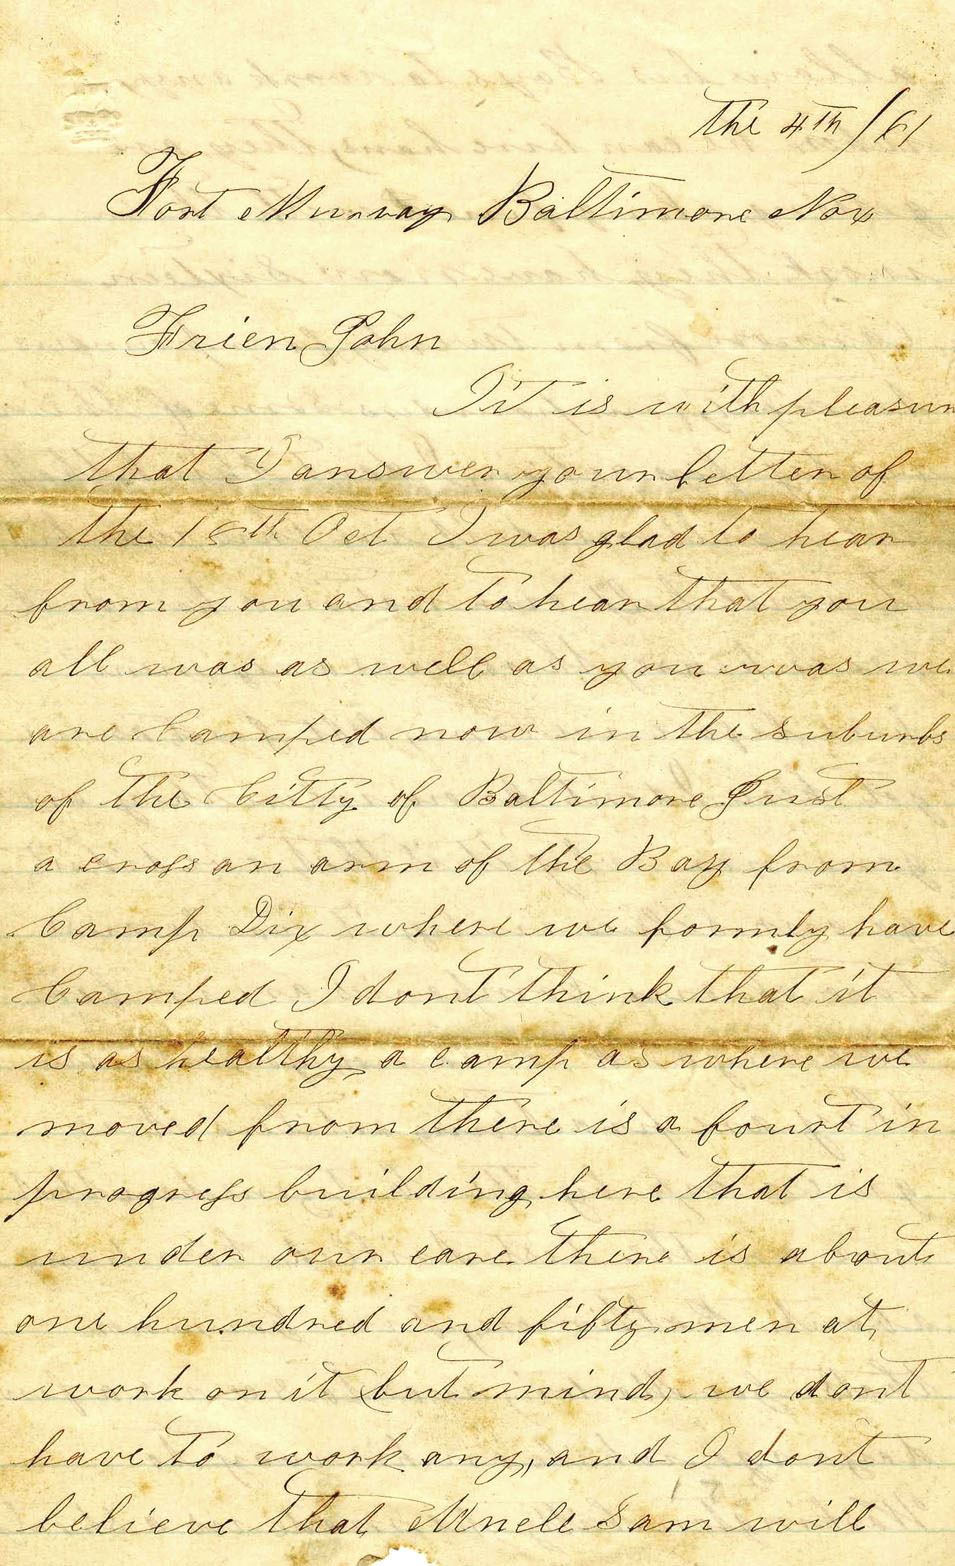 the 4th / 61
Fort Murray Baltimore Nov
Frien John
It is with pleasur
that I answer your letter of
the 18th Oct I was glad to hear
from you and to hear that you
all was as well as you was we
are Camped now in the suburbs
of the Citty of Baltimore Just
a cross an arm of the Bay from
Camp Dix where we formly have
Camped I dont think that it
is as healthy a camp as where we
moved from there is a fourt in
progress building here that is
under our care there is about
one hundred and fifty men at
work on it (but mind) we dont
have to work any, and I dont
believe that Uncle Sam will